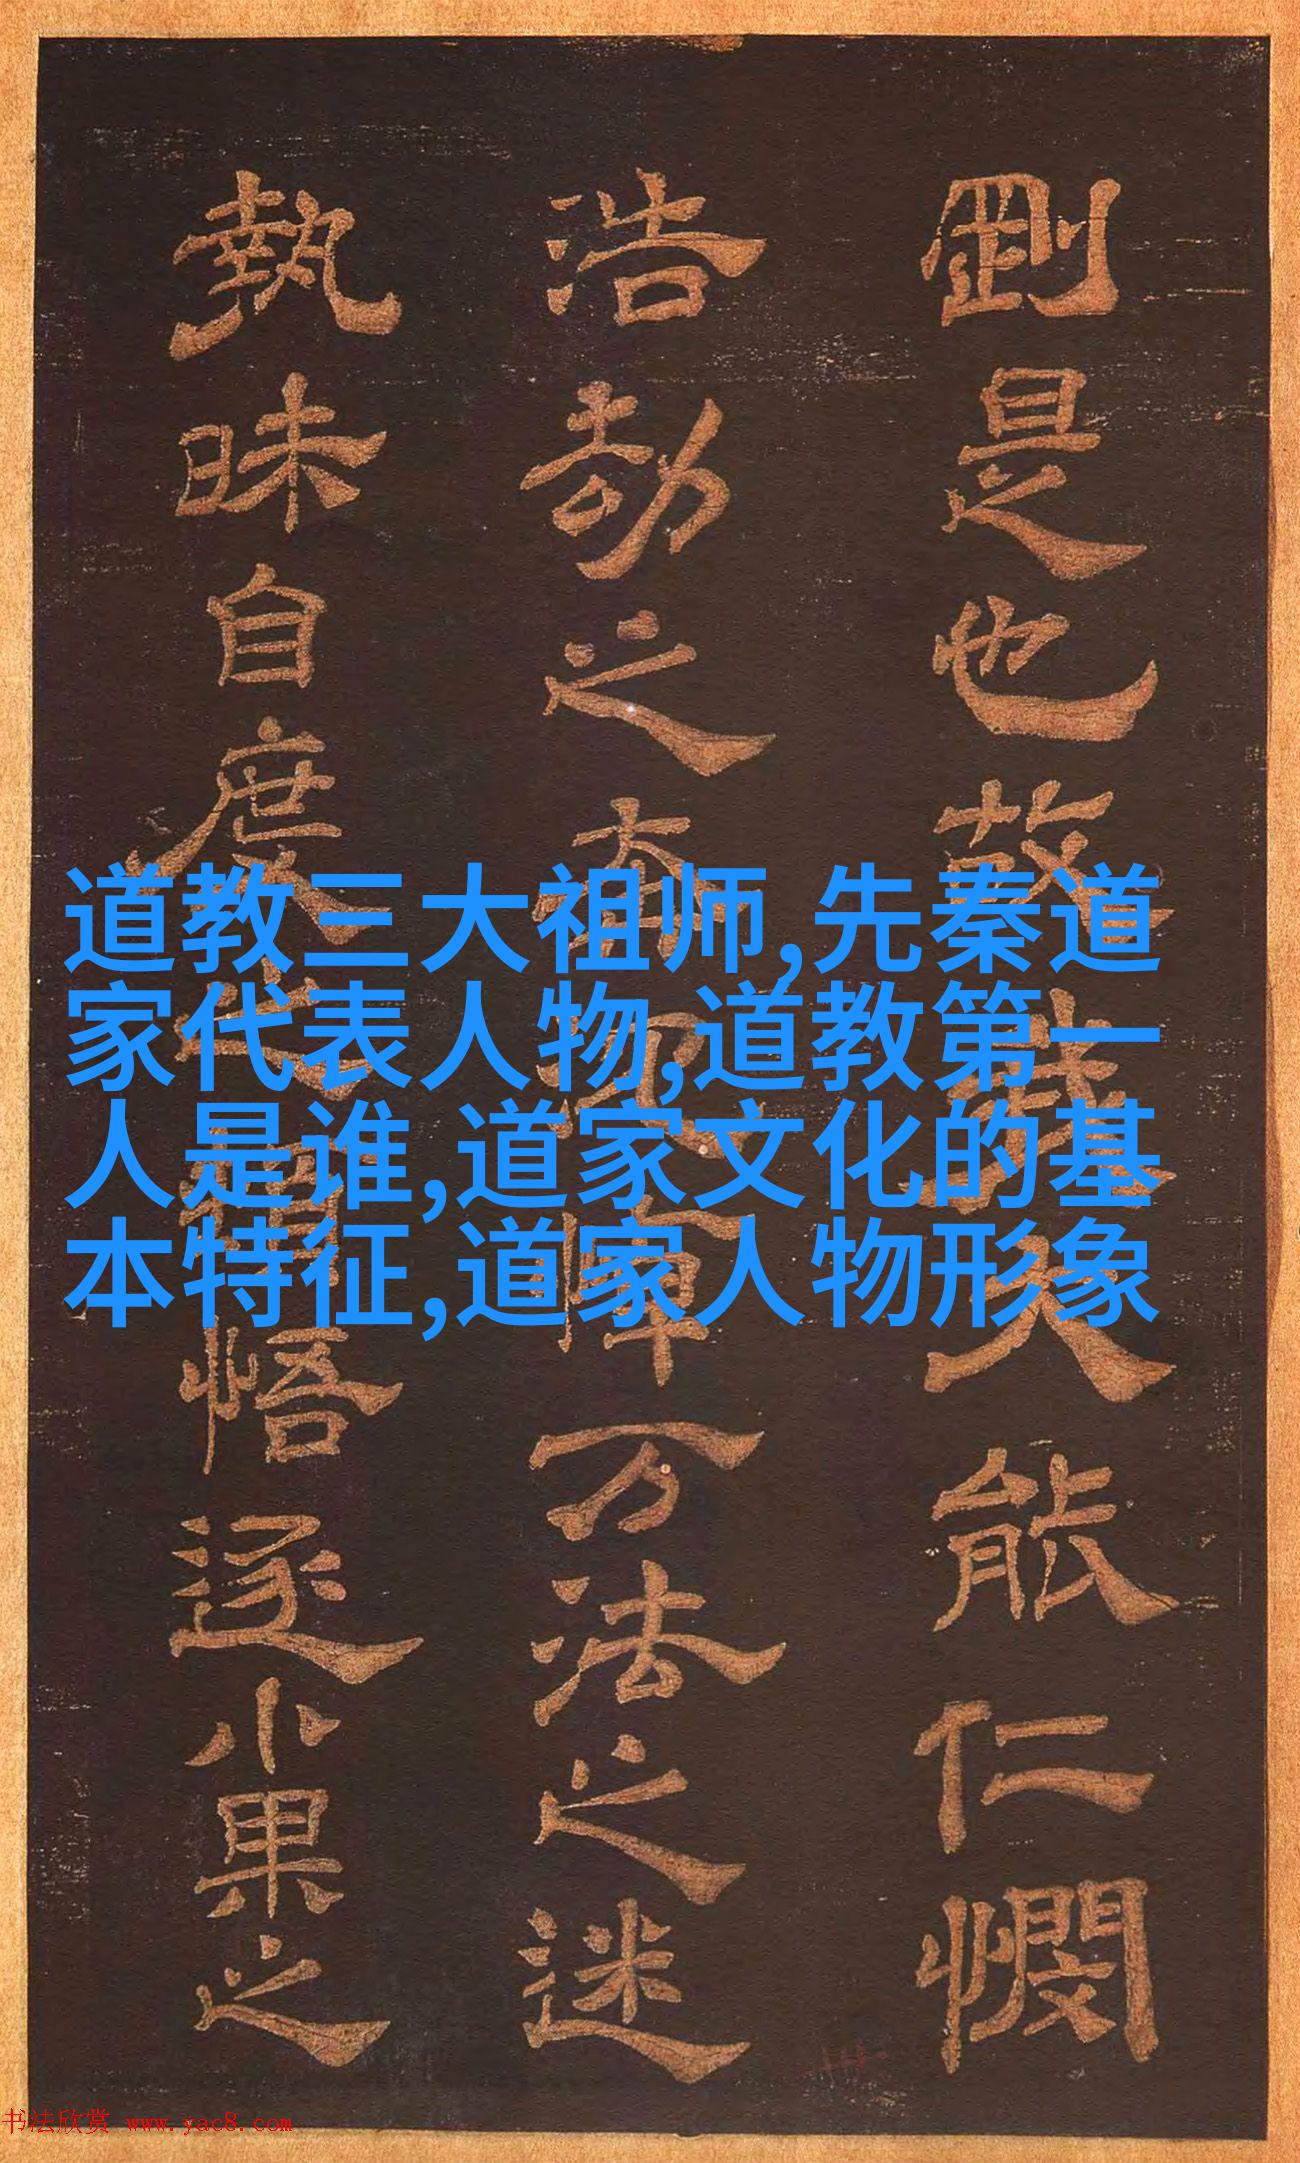 剛是也故能仁憫
浩劫之万法之迷
執昧自度悟逐小果之
道教三大祖师,先秦道
家代表人物,道教第一
人是谁,道家文化的基
本特征,道家人物形象
书法欣赏 www.yac8.com